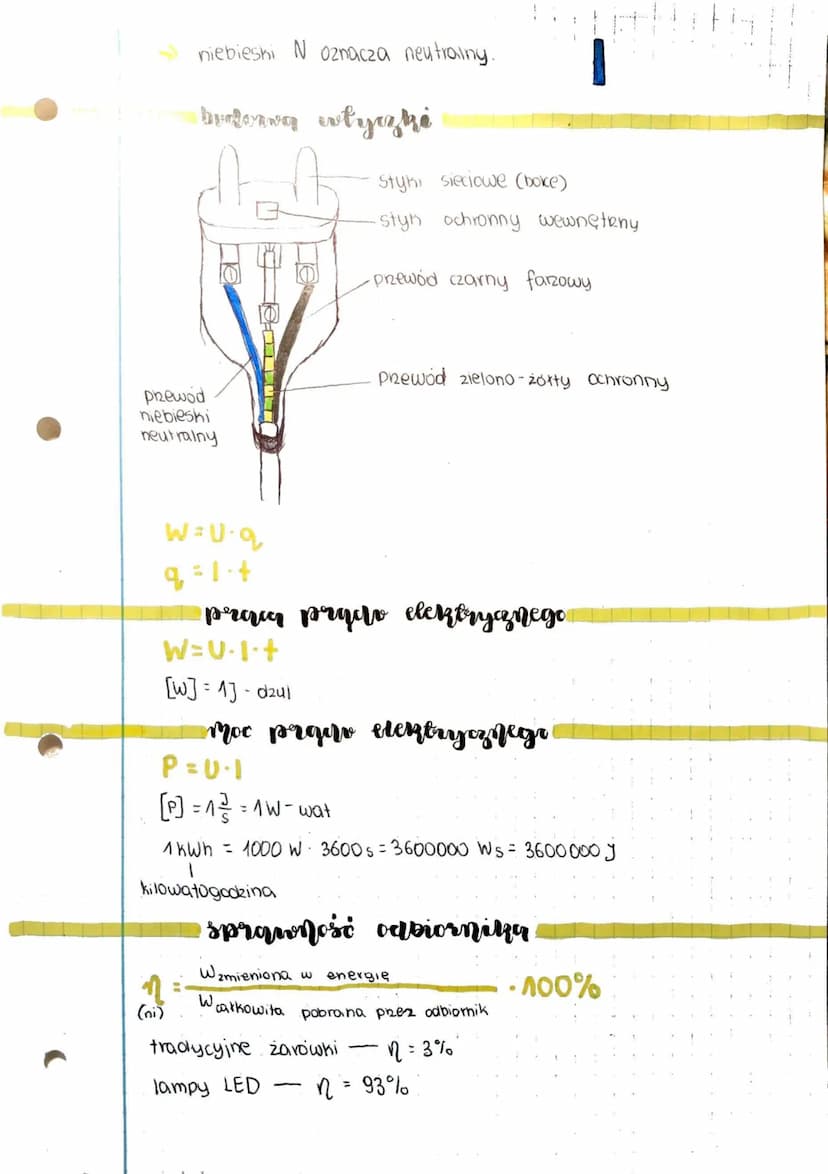 → niebieski N oznacza neutralny.
budowa wtyczki
styki sieciowe (bolce)
styk ochronny wewnętrzny
przewód czarny fazowy
przewód zielono-żółty ochronny
przewód
niebieski
neutralny
W = U · q
q = I · t
praca prądu elektrycznego
W = U · I · t
[W] = 1J - dżul
moc prądu elektrycznego
P = U · I
[P] = 1 J/s = 1W - wat
1 kWh = 1000 W · 3600 s = 3600000 Ws = 3600000 J
kilowatogodzina
sprawność odbiornika
η = W zmieniona w energię / W całkowita pobrana przez odbiornik · 100%
(ni)
tradycyjne żarówki — η = 3%
lampy LED — η = 93%